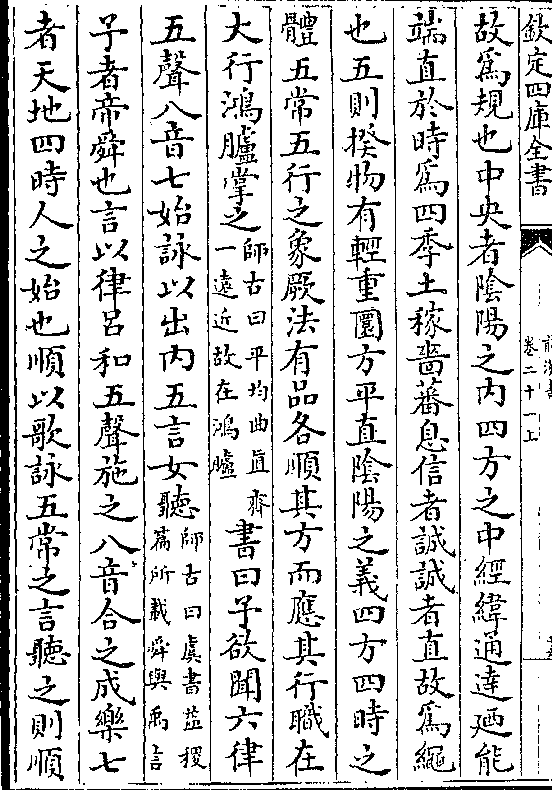 欽定四庫全書
卷二十一上
故爲規也中央者陰陽之内四方之中經緯通達廼能
端直於時爲四季土稼嗇蕃息信者誠誠者直故爲繩
也五則揆物有輕重圜方平直陰陽之義四方四時之
體五常五行之象厥法有品各順其方而應其行職在
大行鴻臚掌之師古曰平均曲直齊一遠近故在鴻臚書曰予欲聞六律
五聲八音七始詠以出内五言女聽師古曰虞書益稷篇所載舜與禹言
予者帝舜也言以律呂和五聲施之八音合之成樂七
者天地四時人之始也順以歌詠五常之言聽之則順